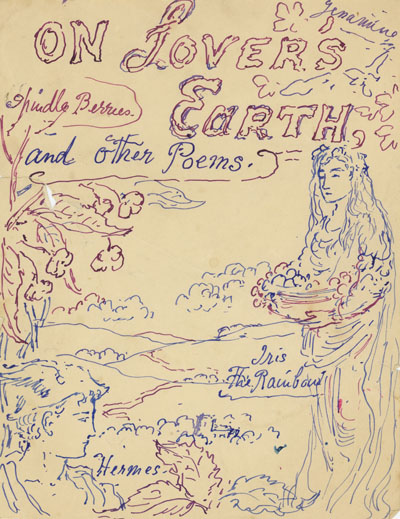 ON Lovers
EARTH,
Spindle Berries.
and other Poems.
Iris
The Rainbow
Hermes